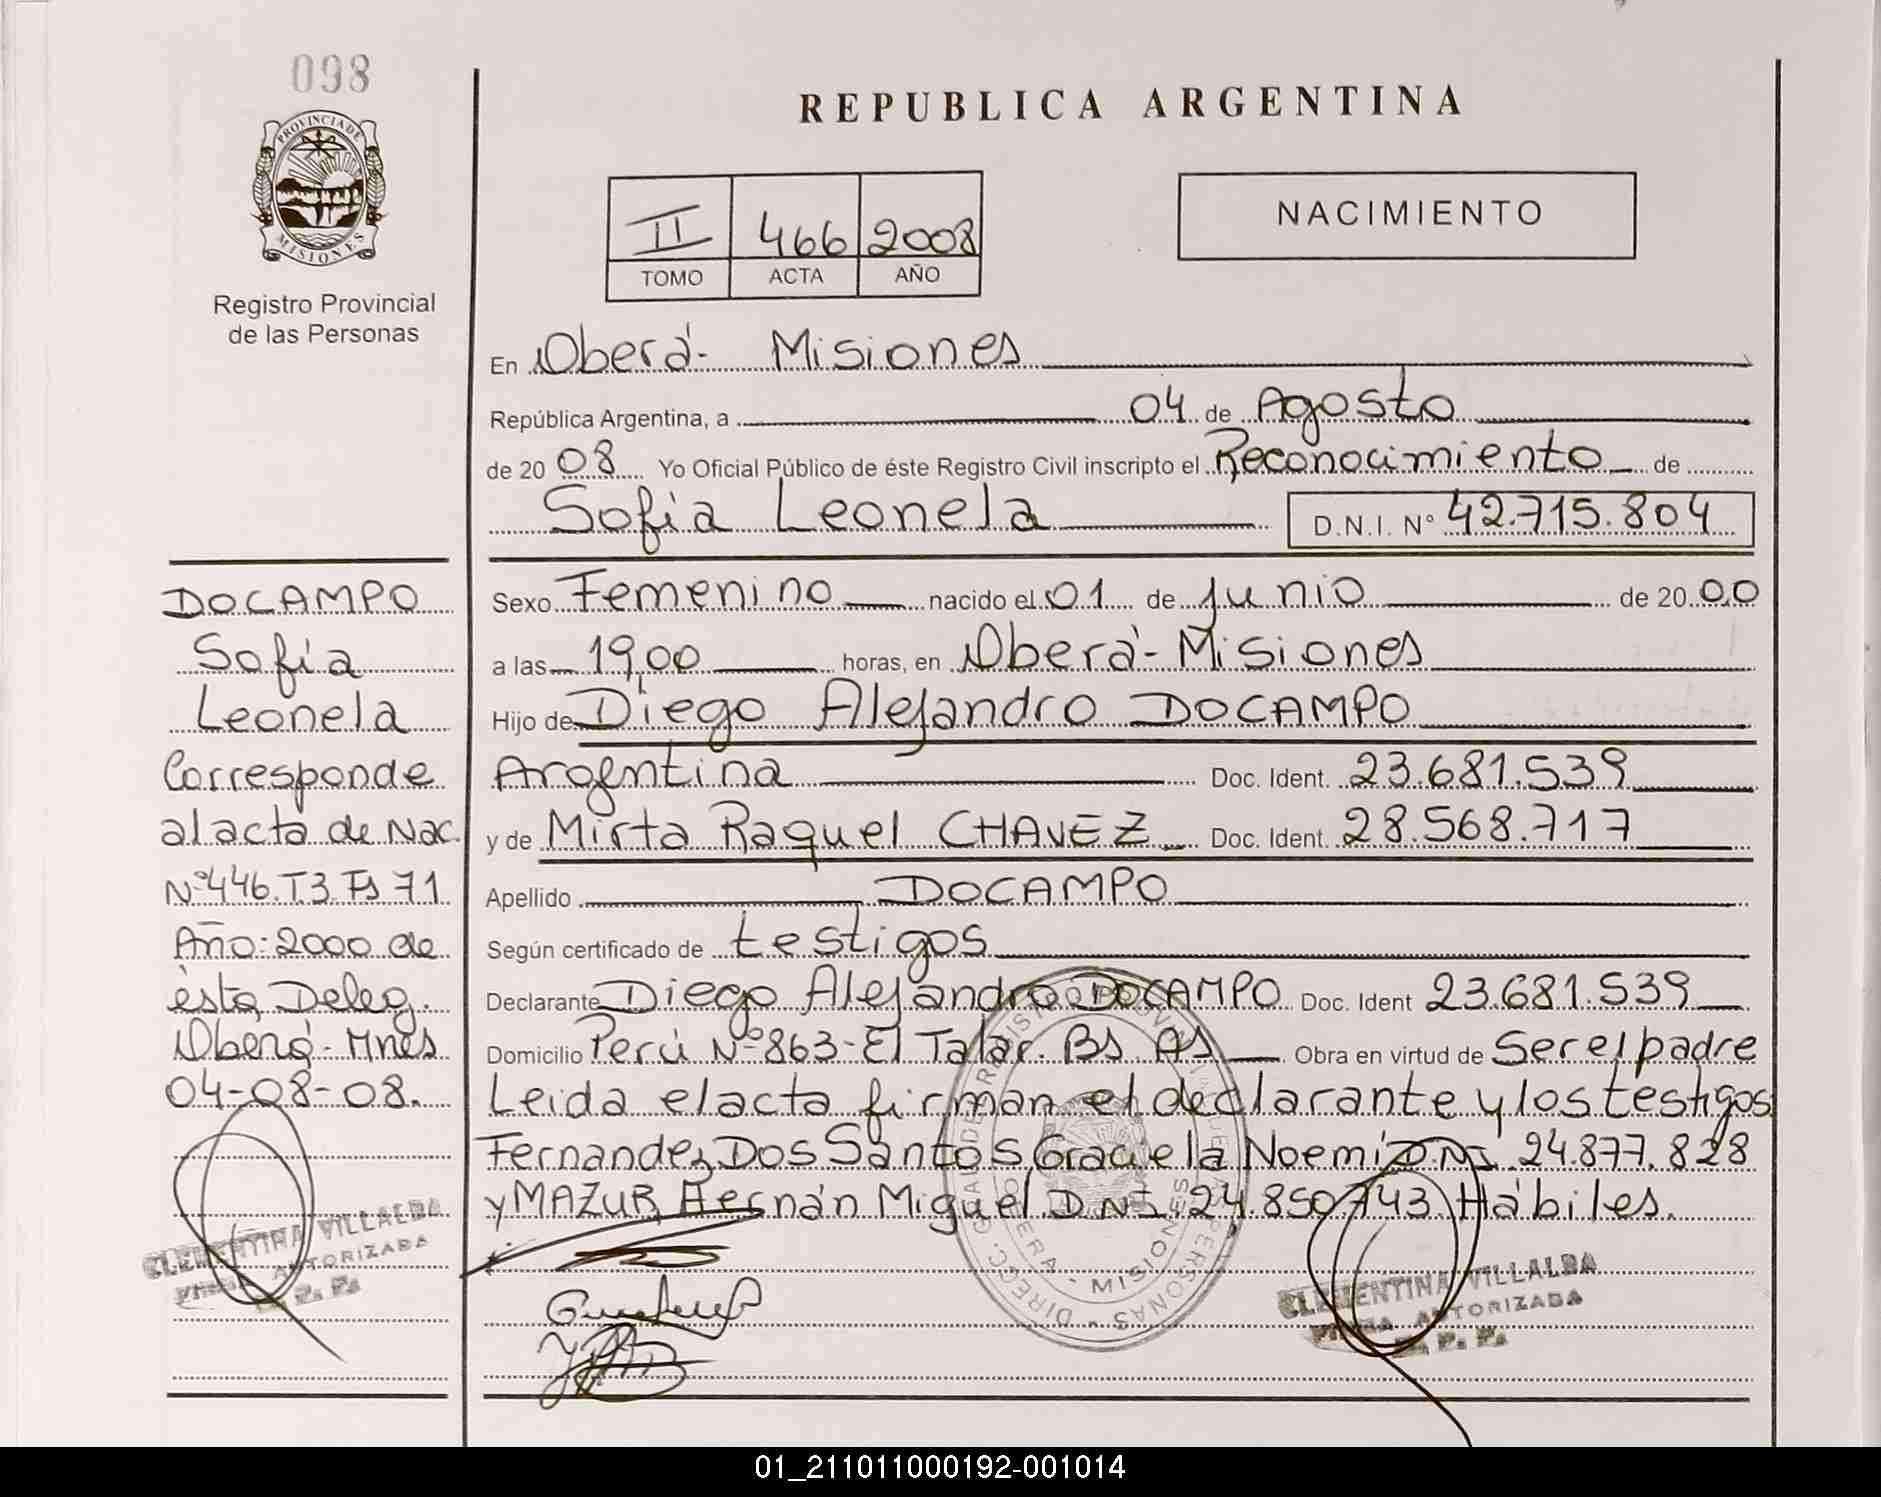 098
PROVINCIA DE
MISIONES
Registro Provincial
de las Personas
REPUBLICA ARGENTINA
II 466 2008
TOMO ACTA AÑO
NACIMIENTO
En Oberá- Misiones
República Argentina, a 04 de Agosto
de 20 08 Yo Oficial Público de éste Registro Civil inscripto el Reconocimiento de
Sofía Leonela D.N.I. N° 42.715.804
Sexo Femenino nacido el 01 de Junio de 20 00
a las 19,00 horas, en Oberá- Misiones
Hijo de Diego Alejandro DOCAMPO
Argentina Doc. Ident. 23.681.539
y de Mirta Raquel CHAVEZ Doc. Ident. 28.568.717
Apellido DOCAMPO
Según certificado de testigos
Declarante Diego Alejandro DOCAMPO Doc. Ident 23.681.539
Domicilio Perú Nº 863- El Talar. Bs As Obra en virtud de Ser el padre
Leida el acta firman el declarante y los testigos
Fernandez Dos Santos, Graciela Noemí D.N.I. 24.877.828
y MAZUR, Hernán Miguel D.N.I. 24.850.743. Hábiles.
DOCAMPO
Sofía
Leonela
Corresponde
al acta de Nac.
Nº 446. T.3. Fs 71.
Año: 2000 de
ésta Deleg.
Oberá- Mnes
04-08-08.
CLEMENTINA VILLALBA
FIRMA AUTORIZADA
R. P. P.
OBERA - MISIONES
CLEMENTINA VILLALBA
FIRMA AUTORIZADA
R. P. P.
01_211011000192-001014